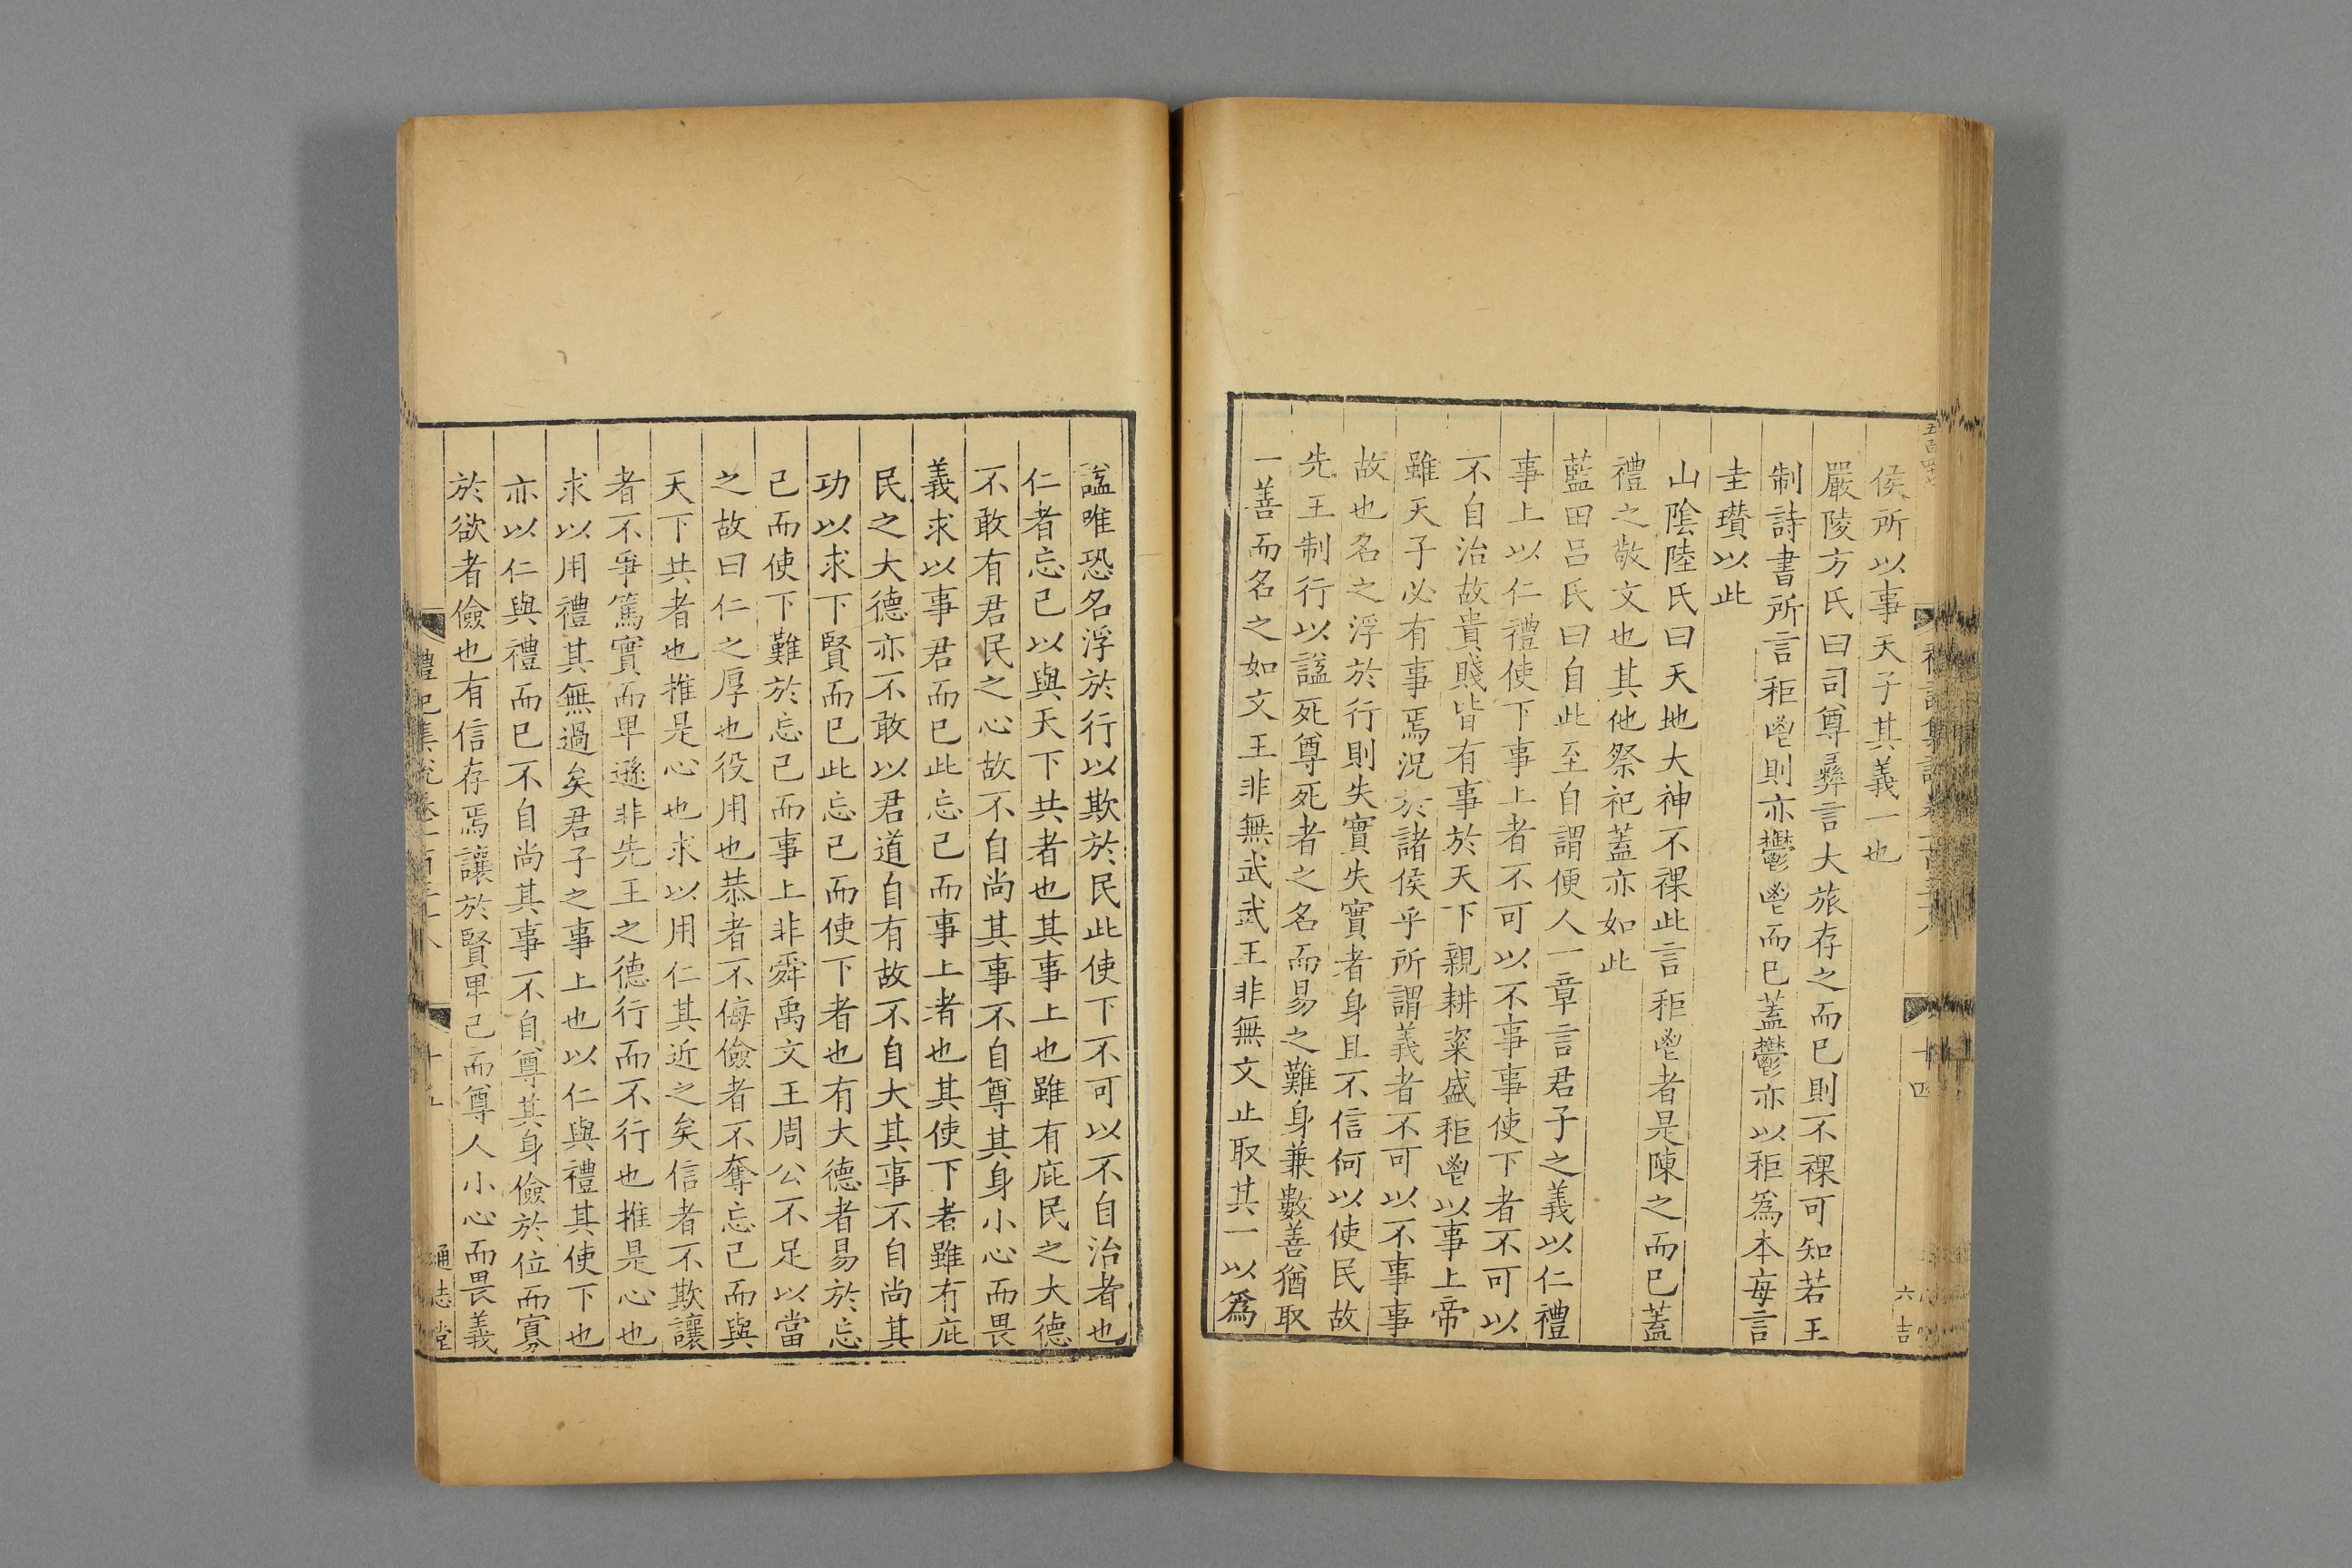 侯所以事天子其義一也
嚴陵方氏曰司尊彝言大旅存之而已則不祼可知若王
制詩書所言秬鬯則亦鬱鬯而已蓋鬱亦以秬爲本每言
圭瓚以此
山陰陸氏曰天地大神不祼此言秬鬯者是陳之而已蓋
禮之敬文也其他祭祀蓋亦如此
藍田呂氏曰自此至自謂便人一章言君子之義以仁禮
事上以仁禮使下事上者不可以不事事使下者不可以
不自治故貴賤皆有事於天下親耕粢盛秬鬯以事上帝
雖天子必有事焉況於諸侯乎所謂義者不可以不事事
故也名之浮於行則失實失實者身且不信何以使民故
先王制行以諡死尊死者之名而易之難身兼數善猶取
一善而名之如文王非無武武王非無文止取其一以爲
諡唯恐名浮於行以欺於民此使下不可以不自治者也
仁者忘己以與天下共者也其事上也雖有庇民之大德
不敢有君民之心故不自尚其事不自尊其身小心而畏
義求以事君而已此忘己而事上者也其使下者雖有庇
民之大德亦不敢以君道自有故不自大其事不自尚其
功以求下賢而已此忘己而使下者也有大德者易於忘
己而使下難於忘己而事上非舜禹文王周公不足以當
之故曰仁之厚也役用也恭者不侮儉者不奪忘己而與
天下共者也推是心也求以用仁其近之矣信者不欺讓
者不爭篤實而卑遜非先王之德行而不行也推是心也
求以用禮其無過矣君子之事上也以仁與禮其使下也
亦以仁與禮而已不自尚其事不自尊其身儉於位而寡
於欲者儉也有信存焉讓於賢卑己而尊人小心而畏義
通志堂